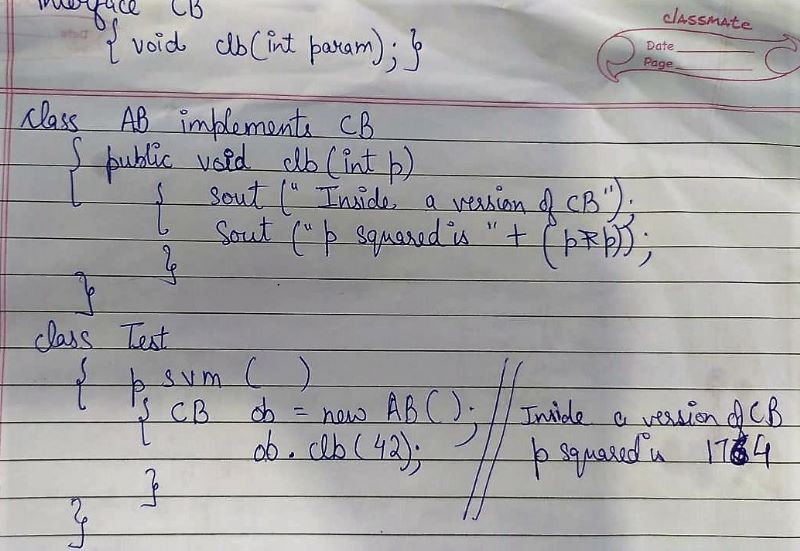 interface CB
classmate
Date
Page
{ void clb(int param); }
class AB implements CB
{ public void clb(int p)
{ sout (" Inside a version of CB");
sout ("p squared is " + (p*p));
}
}
class Test
{ p svm ( )
{ CB ob = new AB();
ob.clb(42);
}
}
// Inside a version of CB
p squared is 1764